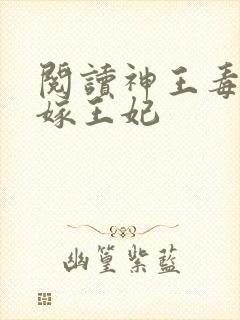 閱讀神王毒
嫁王妃
幽篁紫藍